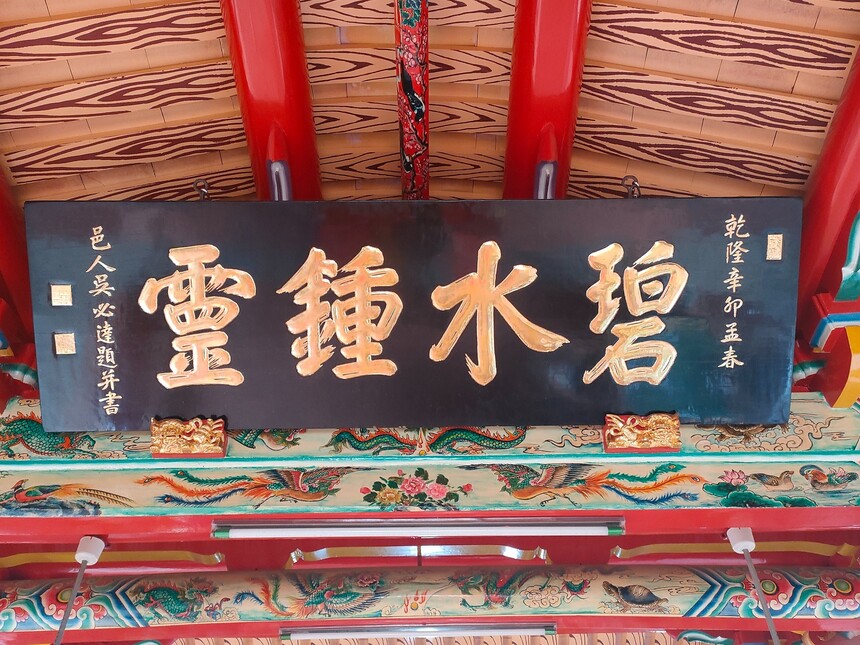 乾隆辛卯孟春
碧水鍾靈
邑人吳必達題并書